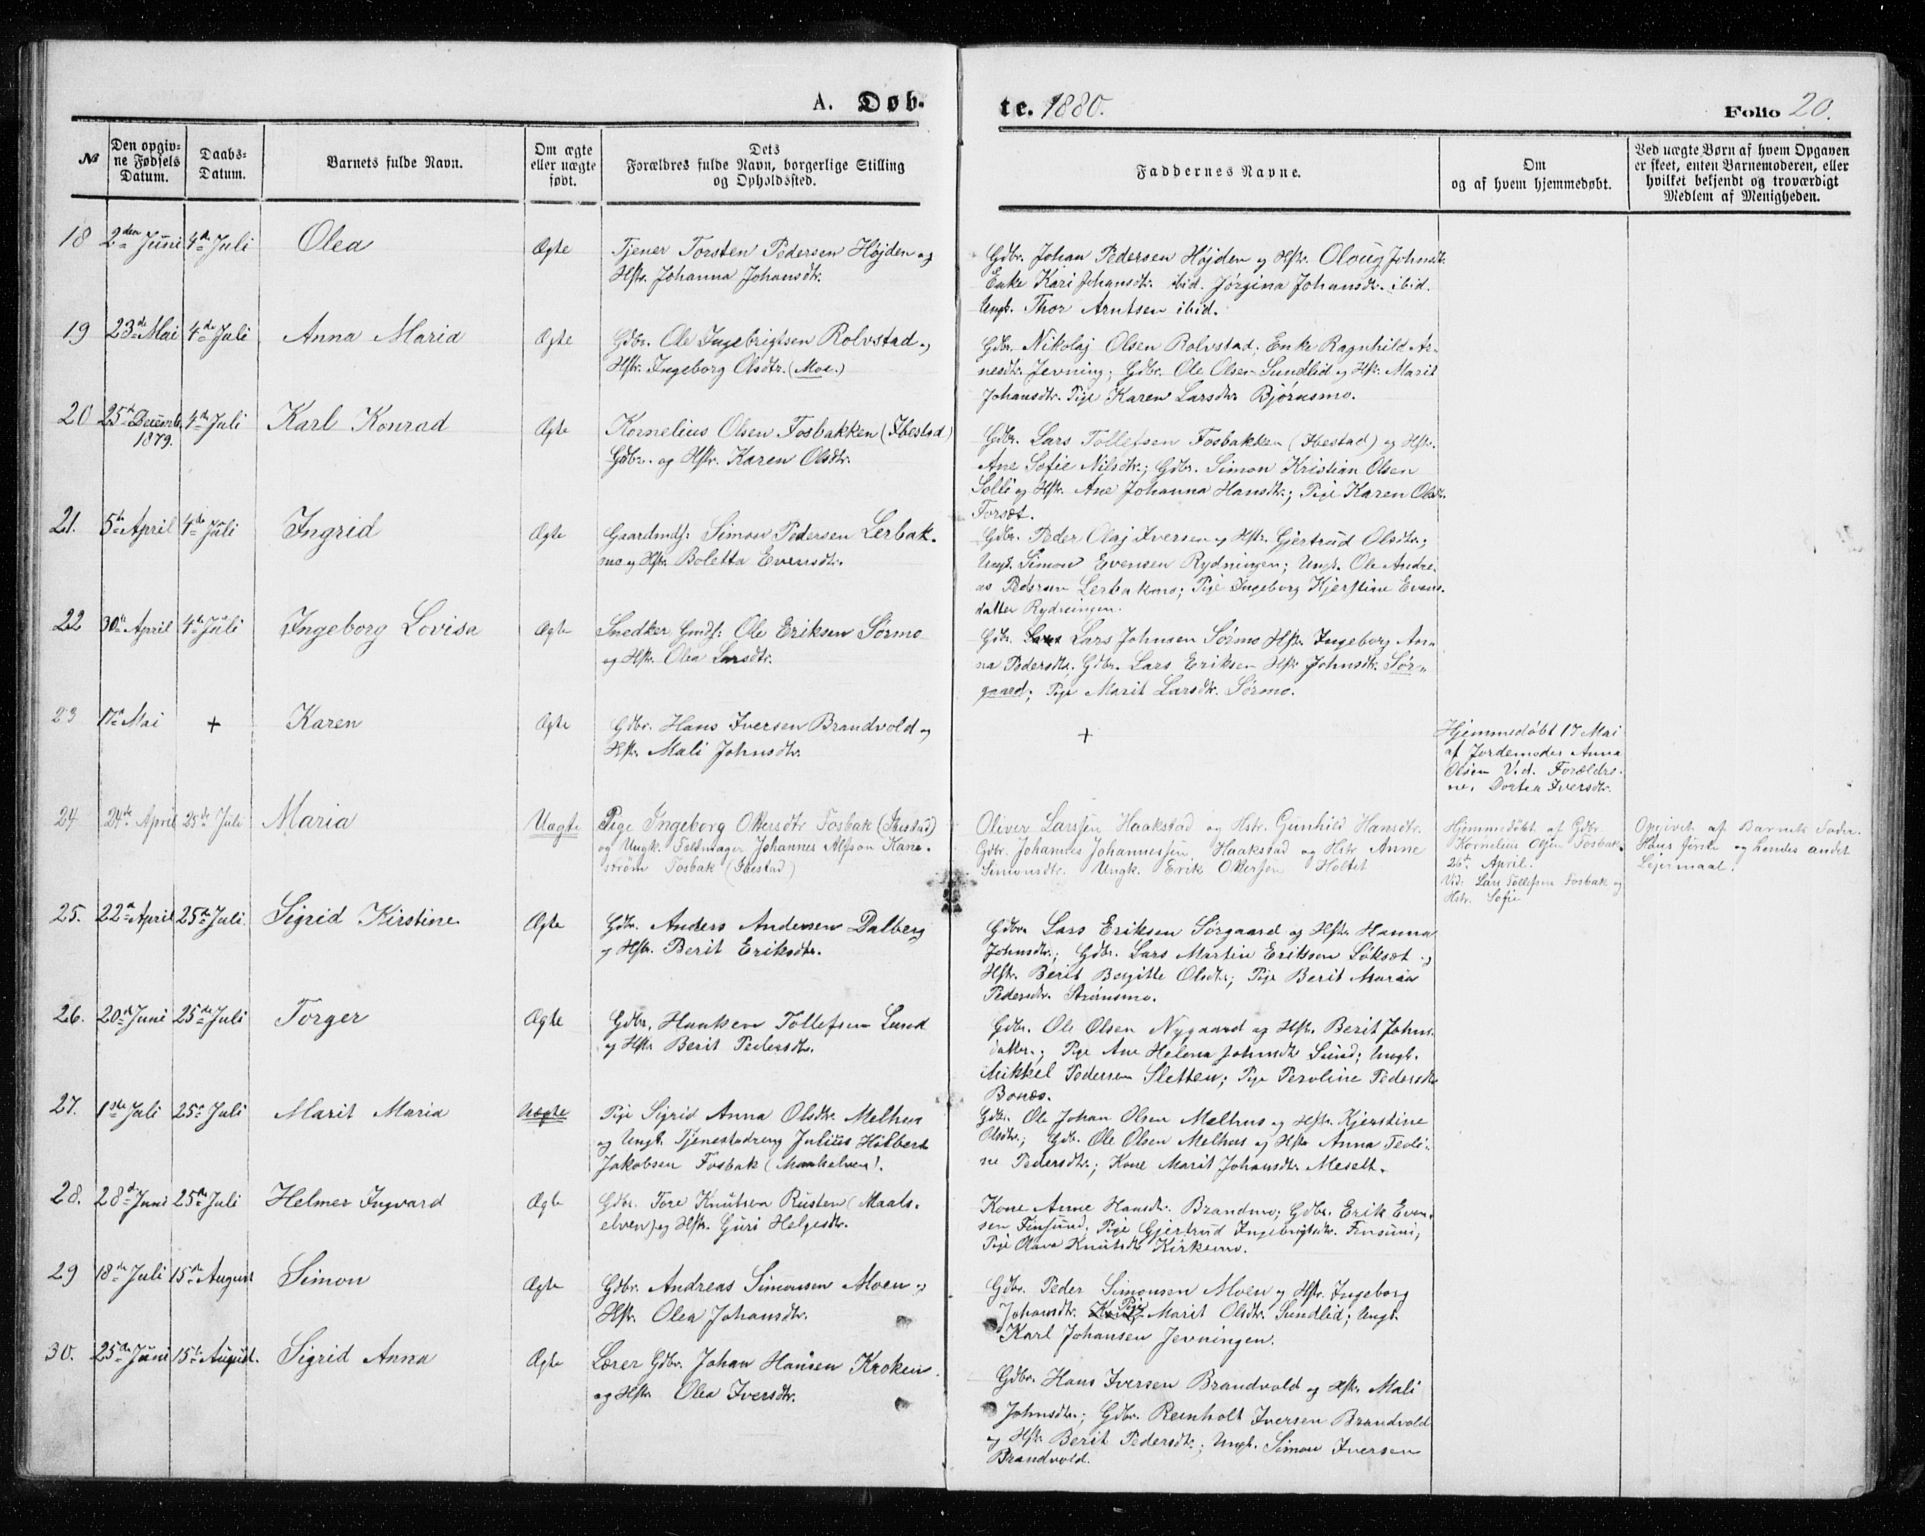 A. Døb-
te. 1880.
Folio 20.
№
Den opgiv-
ne Fødsels
Datum.
Daabs-
Datum.
Barnets fulde Navn.
Om ægte
eller uægte
født.
Dets
Forældres fulde Navn, borgerlige Stilling
og Opholdssted.
Faddernes Navne.
Om
og af hvem hjemmedøbt.
Ved uægte Børn af hvem Opgaven
er skeet, enten Barnemoderen, eller
hvilket bekjendt og troværdigt
Medlem af Menigheden.
18 2den Juni 4de Juli Olea Ægte
Tjener Torsten Pedersen Højden og
Hstr. Johanna Johansdtr.
Gdbr. Johan Pedersen Højden og Hstr. Oloug Johnsdtr.
Enke Kari Johansdtr. ibid. Jørgina Johansdtr. ibid.
Ungk. Thor Arntsen ibid.
19 23de Mai 4de Juli Anna Maria Ægte
Gdbr. Ole Ingebrigtsen Rolvstad og
Hstr. Ingeborg Olsdtr. (Moe.)
Gdbr. Nikolaj Olsen Rolvstad; Enke Ragnhild Ar-
nesdtr. Jevning; Gdbr. Ole Olsen Sundlid og Hstr. Marit
Johansdtr. Pige Karen Larsdtr Bjørnsmo.
20 25de Decemb. 1879. 4de Juli Karl Konrad Ægte
Kornelius Olsen Fosbakken (Ibestad)
Gdbr. og Hstr. Karen Olsdtr.
Gdbr. Lars Tollefsen Fosbakken (Ibestad) og Hstr.
Ane Sofie Nilsdtr.; Gdbr. Simon Kristian Olsen
Solli og Hstr. Ane Johanna Hansdtr.; Pige Karen Olsdtr.
Forsæt.
21. 5te April 4de Juli Ingrid Ægte
Gaardmdf: Simon Pedersen Lerbak-
mo og Hstr. Boletta Evensdtr.
Gdbr. Peder Olaj Iversen og Hstr. Gjertrud Olsdtr.;
Ungk. Simon Evensen Rydningen; Ungk. Ole Andre-
as Pedersen Lerbakmo; Pige Ingeborg Kjerstine Evens-
datter Rydningen.
22 30te April 4de Juli Ingeborg Lovisa Ægte
Snedker Gmdf: Ole Eriksen Sørmo
og Hstr. Olea Larsdtr.
Gdbr. Lars Johnsen Sørmo Hstr. Ingeborg An-
na Pedersdtr. Gdbr. Lars Eriksen Hstr Johnsdtr. Sør-
gaard; Pige Marit Larsdtr. Sørmo.
23 17de Mai + Karen Ægte
Gdbr. Hans Iversen Brandvold og
Hstr. Mali Johnsdtr.
+
Hjemmedøbt 17 Mai
af Jordemoder Anna
Olsen Vid. Forældre-
ne, Dortea Iversdtr.
24 24de April 25de Juli Maria Uægte
Pige Ingeborg Ottersdtr Fosbak (Ibestad)
og Ungk. Feldmager Johannes Alfson Kana-
strøm Fosbak (Ibestad)
Oliver Larssen Haakstad og Hstr. Gunhild Hansdtr.
Gdbr. Johannes Johannessen Haakstad og Hstr Anne
Simonsdtr. Ungk. Erik Ottersen Holtet
Hjemmedøbt af Gdbr
Kornelius Olsen Fosbak.
26de April.
Vid: Lars Tollefsen Fosbak og
Hstr. Sofie
Opgivet af Barnets Fader
Hans første og hendes andet
Lejermaal.
25. 22de April 25de Juli. Sigrid Kirstine Ægte
Gdbr. Anders Andersen Dalberg
og Hstr. Berit Eriksdtr.
Gdbr. Lars Eriksen Sørgaard og Hstr. Hanna
Johnsdtr.; Gdbr. Lars Martin Eriksen Løksæt og
Hstr. Berit Bergitte Olsdtr; Pige Berit Maria
Pedersdtr. Strømsmo.
26. 20de Juni 25de Juli Torger Ægte
Gdbr. Haaken Tollefsen Lund
og Hstr Berit Pedersdtr.
Gdbr. Ole Olsen Nygaard og Hstr. Berit Johns-
datter; Pige Ane Helena Johnsdtr Lund; Ungk.
Mikkel Pedersen Sletten; Pige Peroline Pedersdtr
Bonæs.
27. 1ste Juli 25de Juli Marit Maria Uægte
Pige Sigrid Anna Olsdtr. Melhus
og Ungk. Tjenestedreng Julius Hilbert
Jakobsen Fosbak (Maalselven).
Gdbr. Ole Johan Olsen Melhus og Hstr. Kjerstine
Olsdtr.; Gdb. Ole Olsen Melhus og Hstr Anna Peoli-
ne Pedersdtr.; Kone Marit Johansdtr. Meselt.
28. 28de Juni 25de Juli Helmer Ingvard Ægte
Gdbr. Tore Knutsen Rusten (Maals-
elven) og Hstr. Guri Helgesdtr.
Kone Anne Hansdtr. Brandmo; Gdbr. Erik Even-
sen Finsund. Pige Gjertrud Ingebrigtsdtr. Finsund;
Pige Olava Knutsdtr Kirkemo.
29 18de Juli 15de August Simon Ægte
Gdbr. Andreas Simonsen Moen og
Hstr. Olea Johansdtr.
Gdbr. Peder Simonsen Moen og Hstr. Ingeborg
Johansdtr. Pige Marit Olsdtr. Sundlid; Ungk.
Karl Johansen Jevningen.
30. 25de Juni 15de August. Sigrid Anna Ægte
Lærer Gdbr. Johan Hansen Kroken
og Hstr. Olea Iversdtr.
Gdbr. Hans Iversen Brandvold og Hstr. Mali
Johnsdtr; Gdbr. Reinholt Iversen Brandvold
og Hstr. Berit Pedersdtr.; Ungk. Simon Iversen
Brandvold.